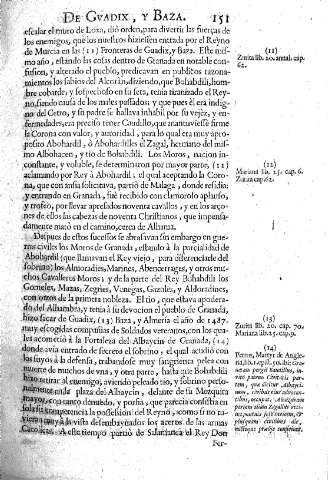 DE GVADIX, Y BAZA. 151
escalar el muro de Loxa, dió orden, para divertir las fuerças de
los enemigos, que los nuestros hiziessen entrada por el Reyno
de Murcia en las (11) Fronteras de Guadix, y Baza. Este mis-
mo año, estando las cosas dentro de Granada en notable con-
fusion, y alterado el pueblo, predicavan en publicos razona-
mientos los sabios del Alcoràn, diziendo, que Bohabdili, hom-
bre cobarde, y sospechoso en su seta, tenia tiranizado el Rey-
no, siendo causa de los males passados; y que pues èl era indig-
no del Cetro, y su padre se hallava inhabil por su vejèz, y en-
fermedades, era preciso tener Caudillo, que mantuviesse firme
la Corona con valor, y autoridad, para lo qual era muy apro-
posito Abohardil, ò Abohardiles el Zagal, hermano del mismo
Albohacen, y tio de Bohabdili. Los Moros, nacion in-
constante, y voluble, se determinaron por mayor parte, (12)
aclamando por Rey à Abohardil; el qual aceptando la Coro-
na, que con ansia solicitava, partiò de Malaga, donde residia;
y entrando en Granada, fuè recibido con clamoroso aplauso,
y trofeo, por llevar apresados noventa cavallos, y en los arço-
nes de ellos las cabezas de noventa Christianos, que impensa-
damente matò en el camino, cerca de Alhama.
Despues de estos sucessos se abrasavan sin embargo en guer-
ras civiles los Moros de Granada, estando à la parcialidad de
Abohardil (que llamavan el Rey viejo, para diferenciarle del
sobrino) los Almoradies, Marines, Abencerrages, y otros mu-
chos Cavalleros Moros; y de la parte del Rey Bohabdili los
Gomeles, Mazas, Zegries, Venegas, Gazules, y Aldoradines,
con otros de la primera nobleza. El tio, que estava apodera-
do del Alhambra, y tenia à su devocion el pueblo de Granada,
hizo sacar de Guadix, (13) Baza, y Almeria el año de 1487.
muy escogidas compañias de Soldados veteranos, con los qua-
les acometiò à la Fortaleza del Albaycin de Granada, (14)
donde avia entrado de secreto el sobrino; el qual acudiò con
los suyos à la defensa, travandose muy sangrienta pelea con
muerte de muchos de una, y otra parte, hasta que Bohabdili
hizo retirar al enemigo, aviendo peleado tio, y sobrino perso-
nalmente en la plaza del Albaycin, delante de su Mezquita
mayor, con tanto denuedo, y porfia, que parecia consistia en
sola su competencia la possession del Reyno; como si no tu-
vieran muy à la vista desembaynados los aceros de las armas
Catolicas. A este tiempo partiò de Salamanca el Rey Don
Fer-
(11)
Zurita lib. 20. annal. cap.
62.
(12)
Mariana lib. 25. cap. 6.
Zurita cap. 62.
(13)
Zurita lib. 20. cap. 70.
Mariana lib. 25. cap.
(14)
Petrus, Martyr de Angle-